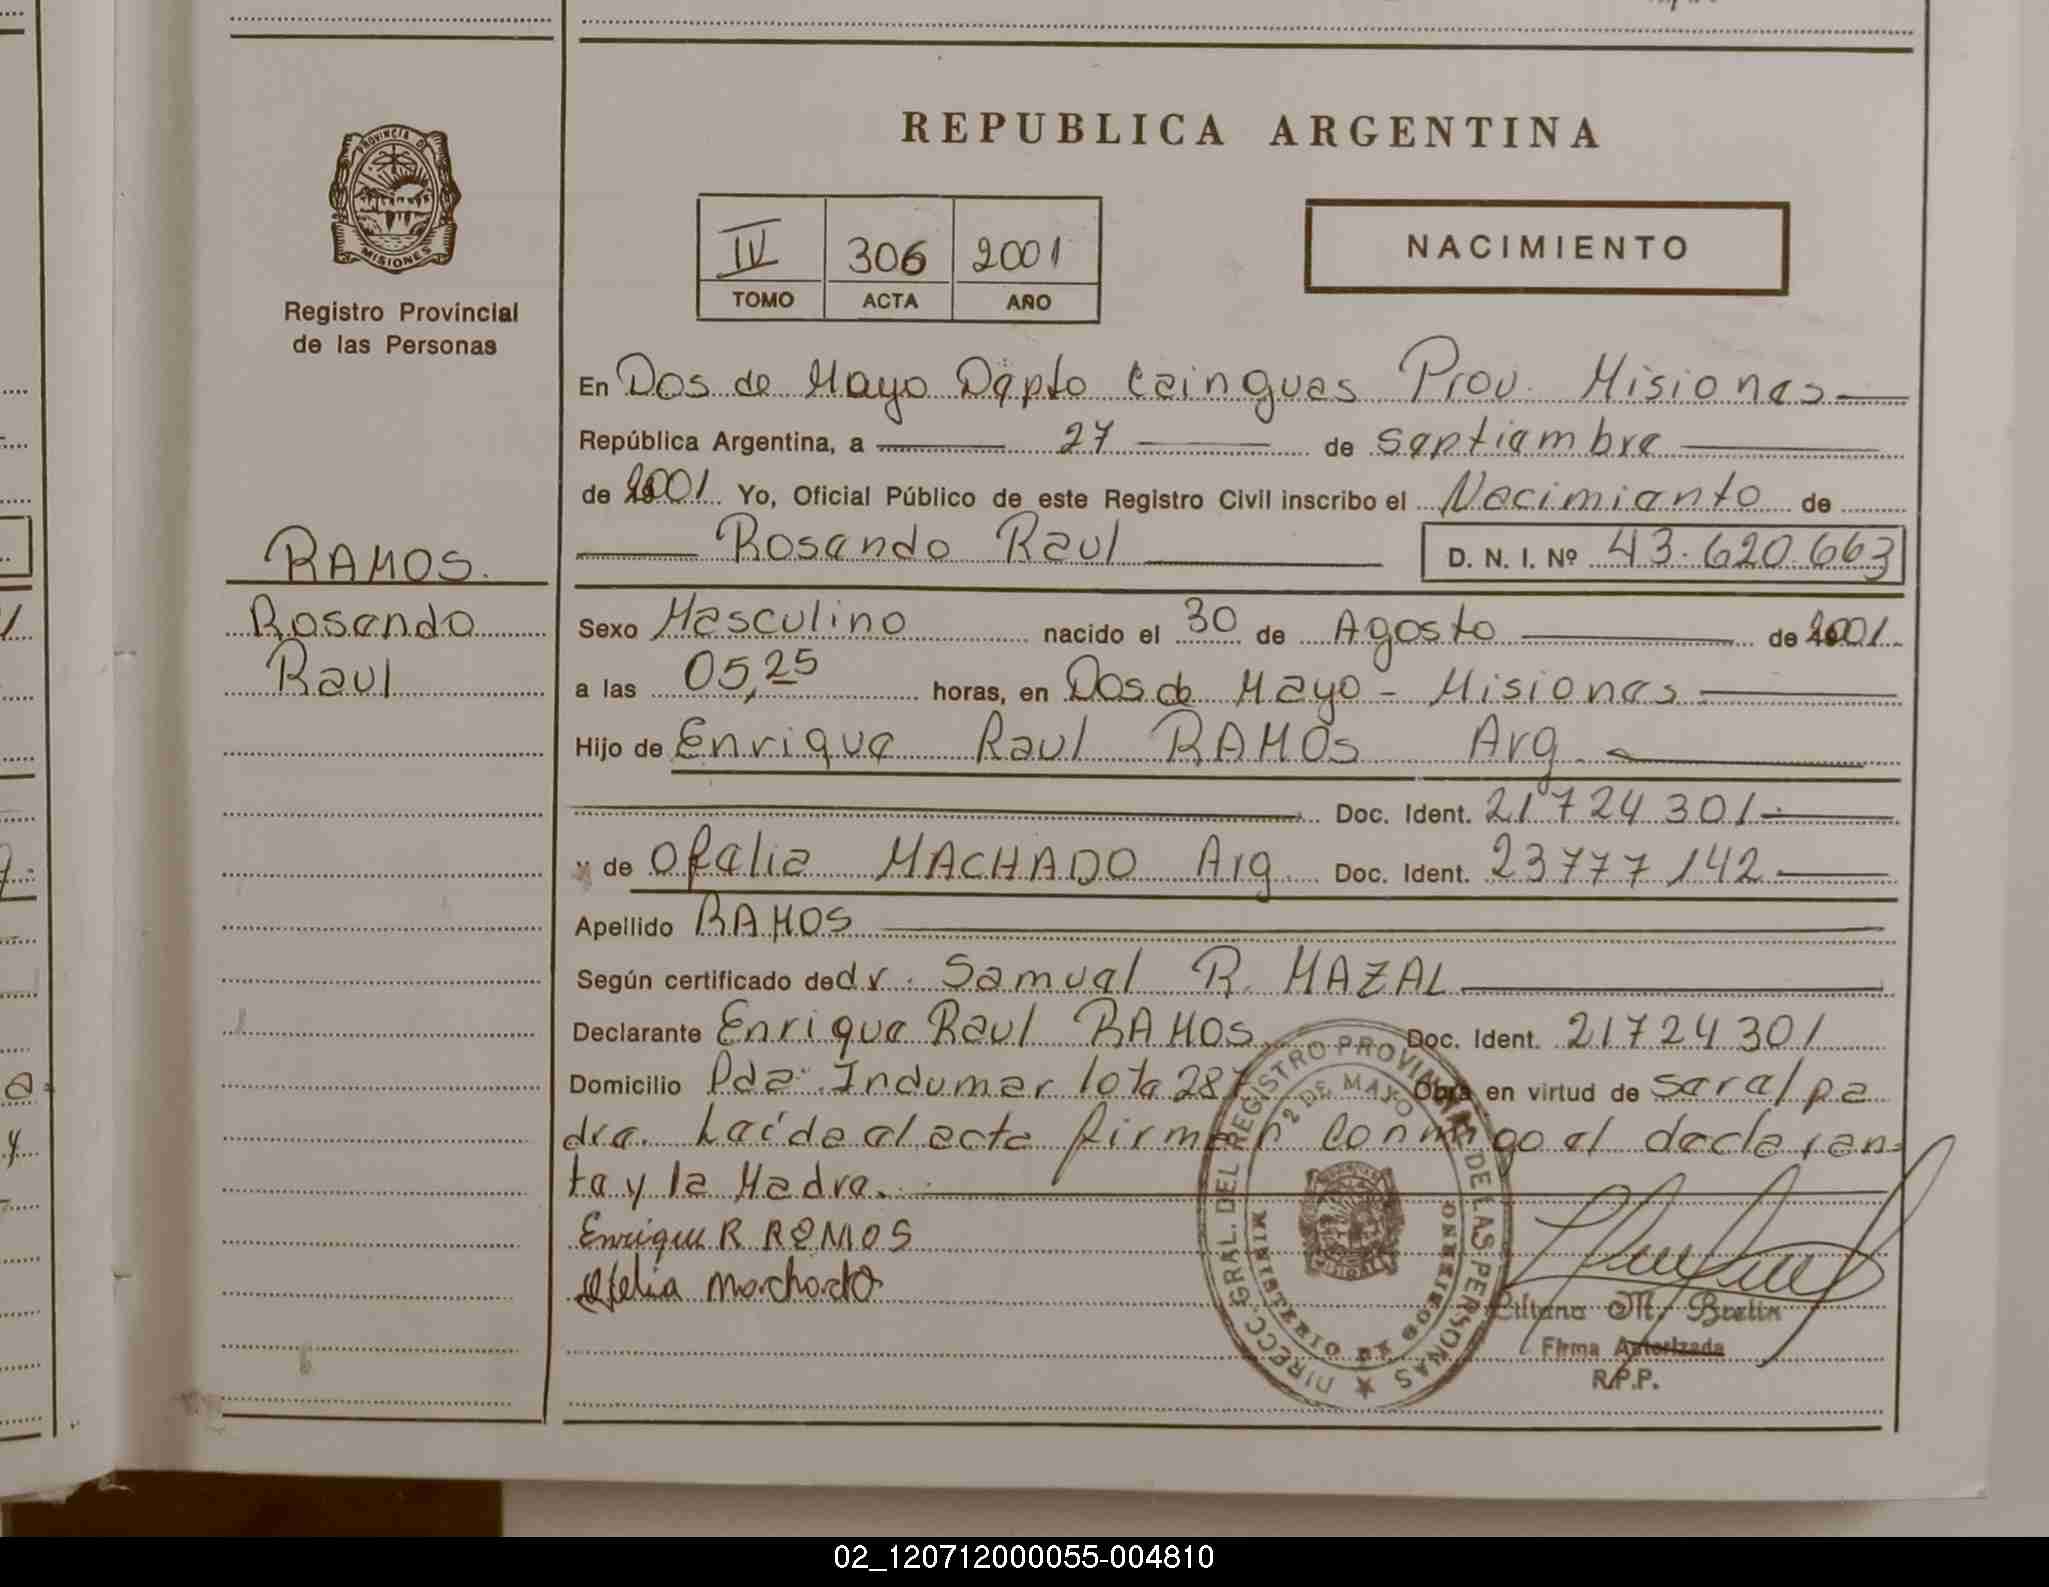 REPUBLICA ARGENTINA
PROVINCIA DE
MISIONES
Registro Provincial
de las Personas
IV 306 2001
TOMO ACTA AÑO
NACIMIENTO
En Dos de Mayo Depto Cainguas Prov. Misiones
República Argentina, a 27 de septiembre
de 2001 Yo, Oficial Público de este Registro Civil inscribo el Nacimiento de
Rosendo Raul D. N. I. Nº 43.620.663
RAMOS.
Rosendo
Raul
Sexo Masculino nacido el 30 de Agosto de 2001
a las 05,25 horas, en Dos de Mayo - Misiones
Hijo de Enrique Raul RAMOS Arg
Doc. Ident. 21724301
y de Ofelia MACHADO Arg. Doc. Ident. 23777142
Apellido RAMOS
Según certificado de dr. Samuel R. MAZAL
Declarante Enrique Raul RAMOS Doc. Ident. 21724301
Domicilio Pda. Indumar lote 287 Obra en virtud de ser el pa
dre. Leída el acta firman conmigo el declaran=
te y la Madre.
Enrique R RAMOS
Ofelia Machado
DIRECC. GRAL. DEL REGISTRO PROVINCIAL DE LAS PERSONAS
2 DE MAYO
MINISTERIO DE GOBIERNO
MISIONES
Liliana M. Brelin
Firma Autorizada
R.P.P.
02_120712000055-004810